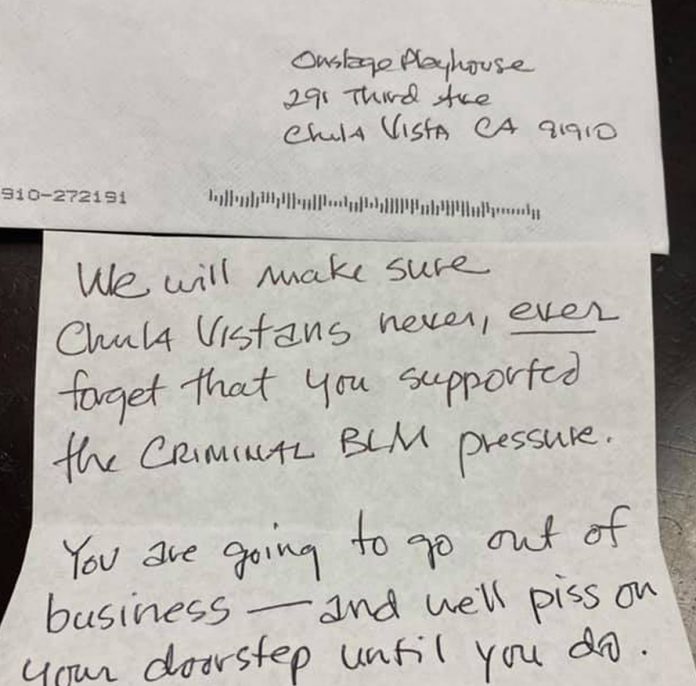 Onstage Playhouse
291 Third Ave
Chula Vista CA 91910
910-272191
We will make sure
Chula Vistans never, ever
forget that you supported
the CRIMINAL BLM pressure.
You are going to go out of
business — and we'll piss on
your doorstep until you do.